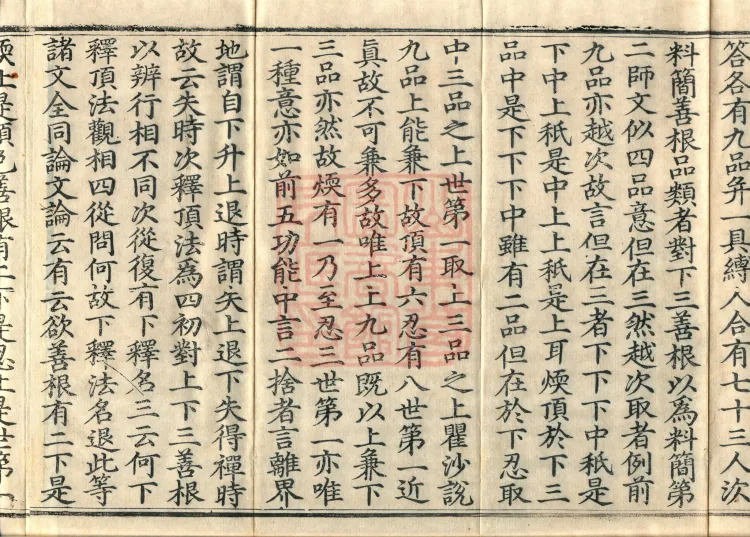 答各有九品并一具縛人合有七十三人次
料簡善根品類者對下三善根以為料簡第
二師文似四品意但在三然越次取者例前
九品亦越次故言但在三者下下下中秖是
下中上秖是中上上秖是上耳煗頂於下三
品中是下下下中雖有二品但在於下忍取
中三品之上世第一取上三品之上瞿沙說
九品上能兼下故頂有六忍有八世第一近
真故不可兼多故唯上上九品既以上兼下
三品亦然故煗有一乃至忍三世第一亦唯
一種意亦如前五功能中言二捨者言離界
地謂自下升上退時謂失上退下失得禪時
故云失時次釋頂法為四初對上下三善根
以辨行相不同次從復有下釋名三云何下
釋頂法觀相四從問何故下釋法名退此等
諸文全同論文論云有云欲善根有二下是
煗上是頂色善根有二下是忍上是世第一